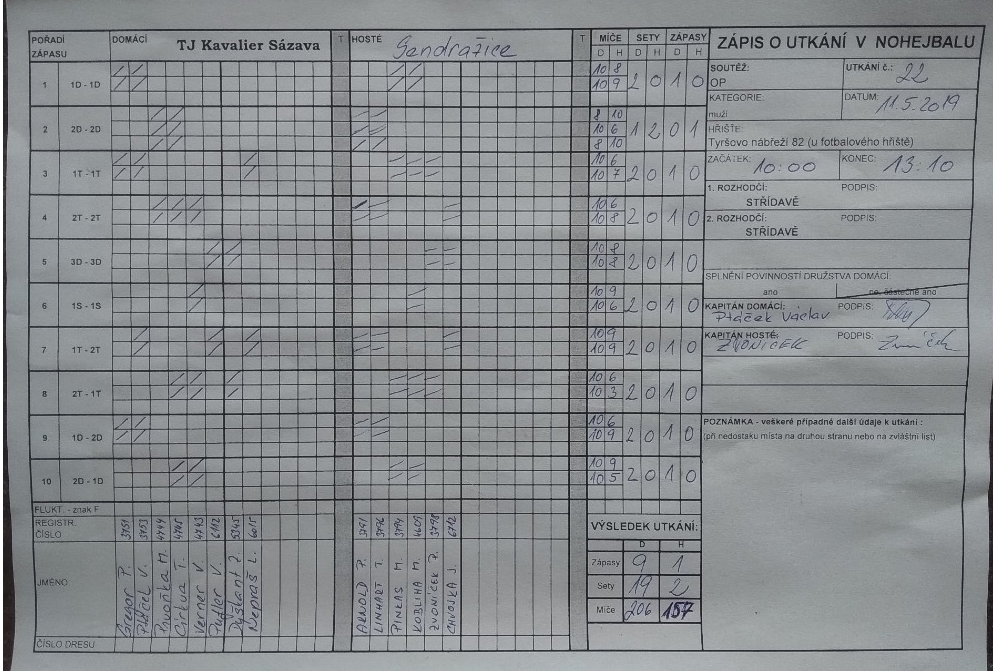 POŘADÍ ZÁPASU DOMÁCÍ TJ Kavalier Sázava T HOSTÉ Sendražice T MÍČE SETY ZÁPASY
D H D H D H
1 1D - 1D 10 8 2 0 1 0
10 9
2 2D - 2D 8 10 1 2 0 1
10 6
8 10
3 1T - 1T 10 6 2 0 1 0
10 7
4 2T - 2T 10 6 2 0 1 0
10 8
5 3D - 3D 10 8 2 0 1 0
10 8
6 1S - 1S 10 9 2 0 1 0
10 6
7 1T - 2T 10 9 2 0 1 0
10 9
8 2T - 1T 10 6 2 0 1 0
10 3
9 1D - 2D 10 6 2 0 1 0
10 9
10 2D - 1D 10 9 2 0 1 0
10 5
FLUKT. - znak F
REGISTR. ČÍSLO
3751 3753 4744 4745 4743 6112 5345 6015
3791 3796 3794 4609 3798 6712
JMÉNO
Gregor P.
Ptáček V.
Cirkva T.
Verner V
Nepraš L.
ARNOLD P.
LINHART T.
PINKAS M.
KOBLIHA M.
ZVONÍČEK P.
CHVOJKA J.
ČÍSLO DRESU
ZÁPIS O UTKÁNÍ V NOHEJBALU
SOUTĚŽ: OP
UTKÁNÍ č.: 22
KATEGORIE: muži
DATUM: 11.5.2019
HŘIŠTĚ:
Tyršovo nábřeží 82 (u fotbalového hřiště)
ZAČÁTEK: 10:00 KONEC: 13:10
1. ROZHODČÍ: PODPIS:
STŘÍDAVĚ
2. ROZHODČÍ: PODPIS:
STŘÍDAVĚ
SPLNĚNÍ POVINNOSTÍ DRUŽSTVA DOMÁCÍ:
ano ne, částečně ano
KAPITÁN DOMÁCÍ: PODPIS:
Ptáček Václav
KAPITÁN HOSTÉ: PODPIS:
ZVONÍČEK
POZNÁMKA - veškeré případné další údaje k utkání :
(při nedostaku místa na druhou stranu nebo na zvláštní list)
VÝSLEDEK UTKÁNÍ:
D H
Zápasy 9 1
Sety 19 2
Míče 206 157